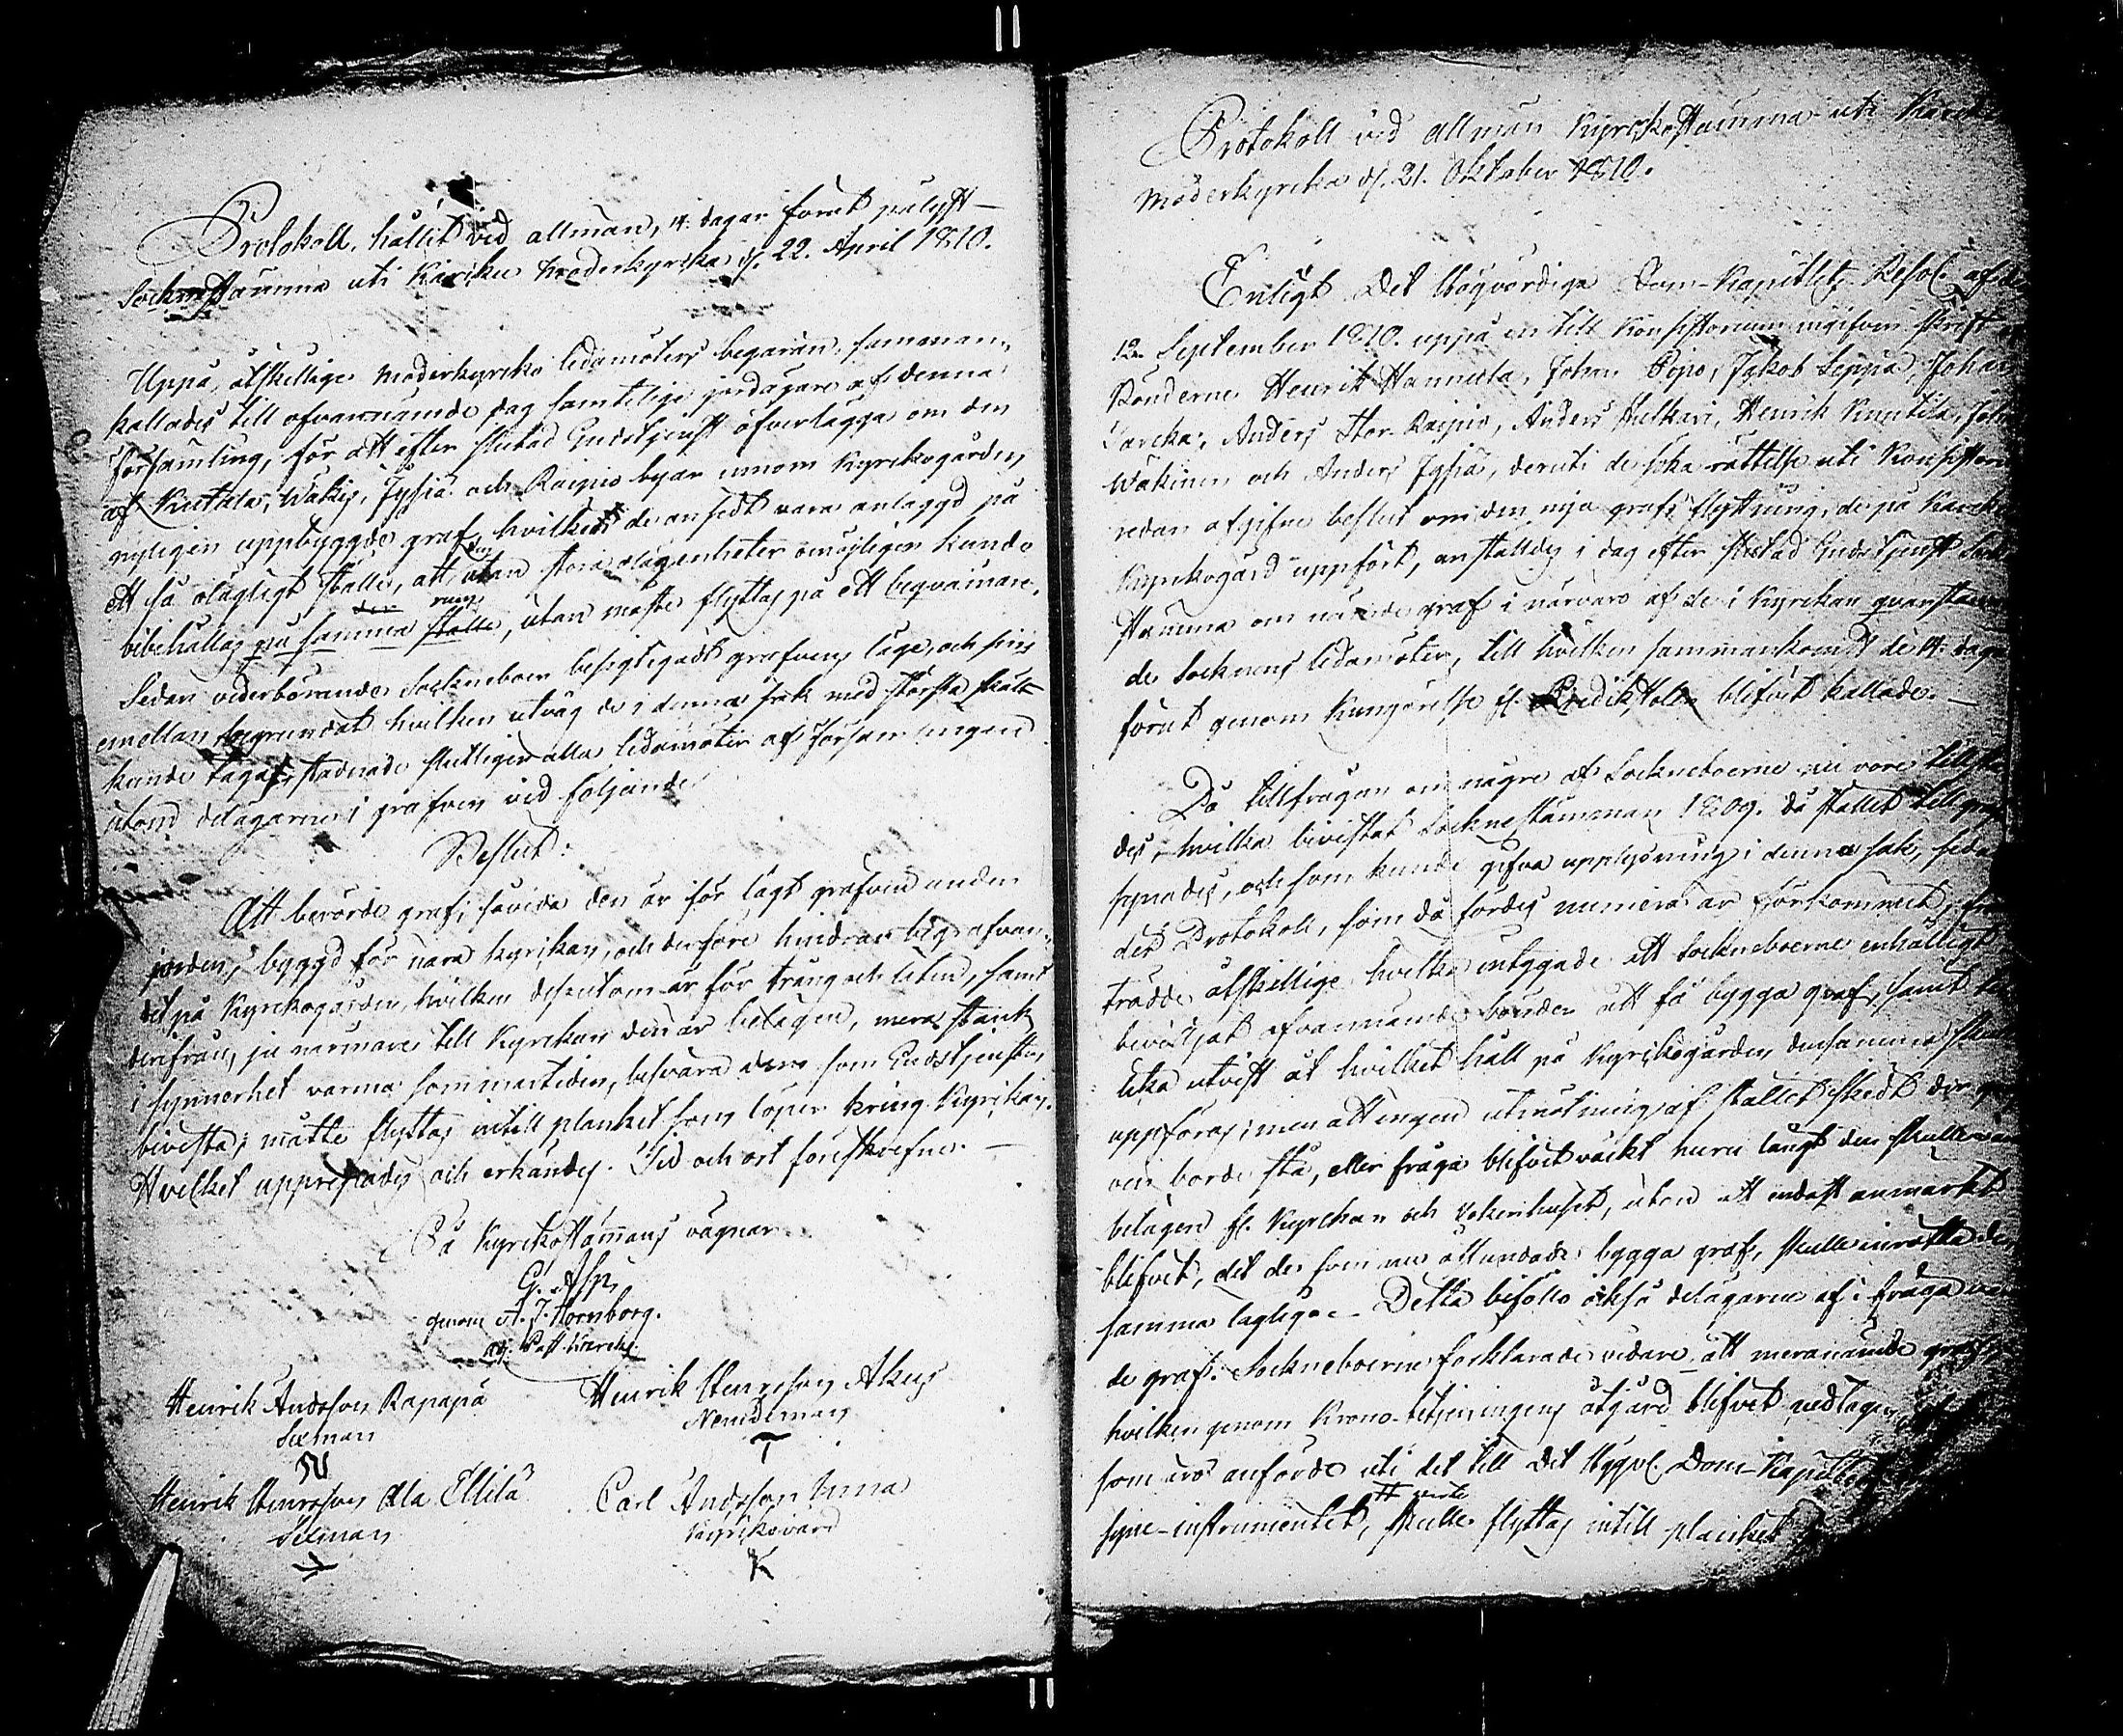 Protokoll, hållit vid allmän, 14. dagar förut pålyst
Socknestämma uti Karcku Moderkyrcka d. 22. April 1810.
Uppå åtskellige Moderkyrcko ledamöters begäran, samman-
kallades till ofvannämde dag samtelige jordägare af denna
församling, för att efter slutad Gudstjenst öfverlägga om den
af Kutala, Wäkis, Jysiä och Raipio byar innom Kyrckogården
nyligen uppbyggde graf, hvilken de ansedt vara anlaggd på
ett så olägligt ställe, att den utan stora olägenheter omöjligen kunde
bibehållas på samma ställe, utan måste flyttas på ett beqvämare.
Sedan vederbörande Sockneboer besigtigadt grafvens läge, och sins
emellan begrundat hvilken utväg de i denna sak med största skäl
kunde taga, stadnade sluteligen alla ledamöter af församlingen
utom delägarne i grafven vid följande
Beslut:
Att berörde graf, såvida den är för lågt grafven under
jorden, byggd för nära kyrckan, och derföre hindrar begrafvan-
det på Kyrckogården, hvilken dessutom är för trång och liten, samt
derifrån, ju närmare till Kyrckan den är belägen, mera stank
i synnerhet varma sommartiden, besvära dem som Gudstjensten
bevista; måtte flyttas intill planket som löper kring Kyrckan.
Hvilket upprepades och erkändes. Tid och ort föreskrefne.
På Kyrckostämmans vägnar
G. Asp,
genom A. J. Hornborg.
adj. Past. Karck.
Henrik Andsson Rapapä
Sexman
Henrik Henrsson Akus
Nemdeman
Henrik Henrsson Ala Ellilä
Sexman
Carl Andsson Anna
Kyrckovärd
K
Protokoll vid allmän Kyrckostämma uti Karcku
Moderkyrcka d. 21. Oktober 1810.
Enligt Det Högvördiga Dom-Kapitlets Resol. af den
12. September 1810. uppå en till Konsistorium ingifven skrift af
Bönderne Henrik Hannula, Johan Pojo, Jakob Seppä, Johan
Jarcka, Anders Stor-Raipio, Anders Hulkari, Henrik Knutila, Johan
Wäkinen och Anders Jysiä, deruti de söka rättelse uti Konsistorii
redan afgifne beslut om den nya grafs flyttning, de på Karcku
Kyrckogård uppfört, anställdes i dag efter slutad Gudstjenst Sockne
stämma om nämde graf i närvaro af de i Kyrckan qvarstadna-
de Socknens ledamöter, till hvilken sammankomst de 14. dagar
förut genom Kungörelse fr. Predikstolen blifvit kallade.
Då tillfrågan om någre af Sockneboerne nu vore tillstä-
des, hvilka bevistat Socknestämman 1809. då stället till graf
synades, och som kunde gifva upplysning i denna sak, sedan
det Protokoll, som då fördes numera är förkommet, fram
trädde åtskellige hvilka intygade att Sockneboerne enhälligt
beviljat ofvannämnde bönder att få bygga graf, samt till
lika utvist åt hvilket håll på Kyrckogården densamma skulle
uppföras; men att ingen utmätning af stället skedt der graf
ven borde stå, eller fråga blifvit väckt huru långt den skulle vara
belägen fr. Kyrckan och Vokenhuset, utan att endast anmärkt
blifvit, det de som nu åstundade bygga graf, skulle inrätta den
samma laglige. Detta biföllo också delägarne af i fråga varan
de graf. Sockneboerne förklarade vidare att meranämde graf,
hvilken genom Krono-betjeningens åtgärd blifvit nedtagen,
som äro anförde uti det till Det Högv. Dom-Kapitlet
syne-instrumentet, skulle flyttas intill planket